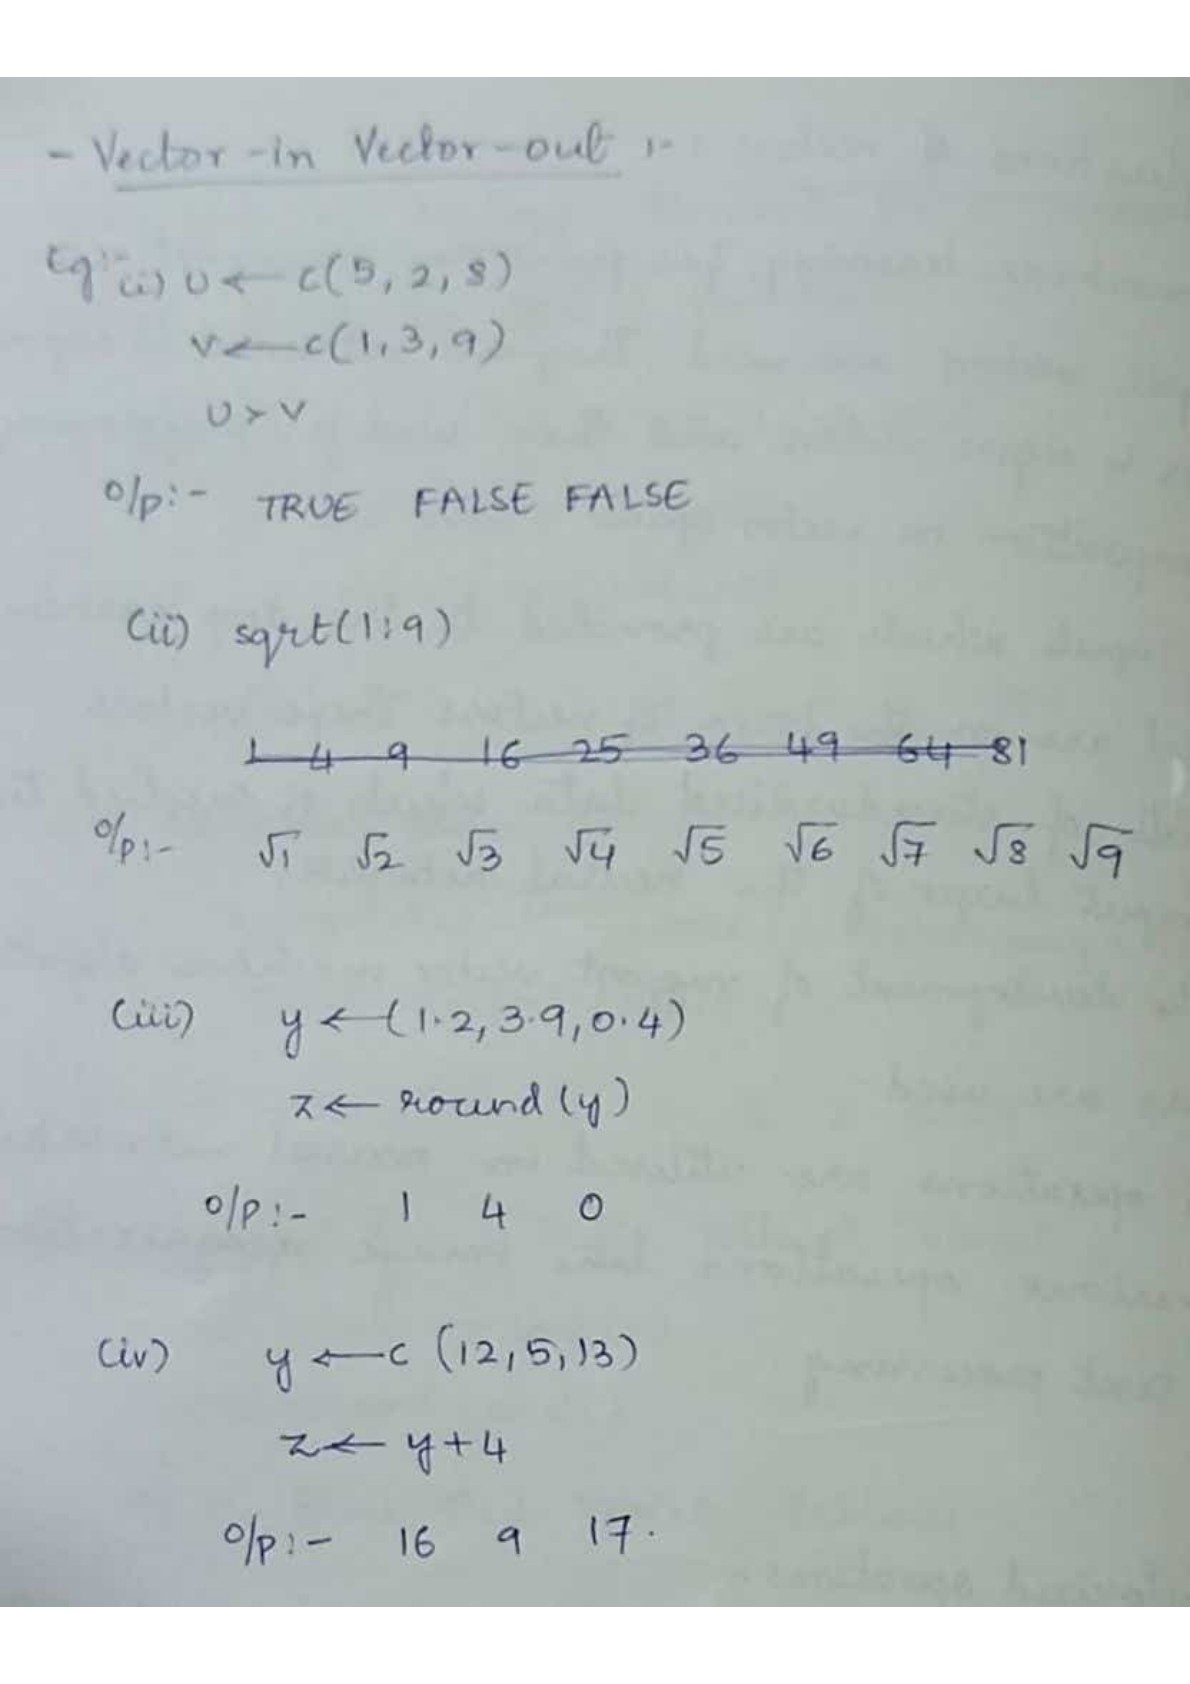 - Vector-in Vector-out :-
Eg:- (i) U ← c(5, 2, 8)
V ← c(1, 3, 9)
U > V
O/p:- TRUE FALSE FALSE
(ii) sqrt(1:9)
1 4 9 16 25 36 49 64 81
O/p:- √1 √2 √3 √4 √5 √6 √7 √8 √9
(iii) y ← (1.2, 3.9, 0.4)
z ← round(y)
O/p:- 1 4 0
(iv) y ← c (12, 5, 13)
z ← y + 4
O/p:- 16 9 17.